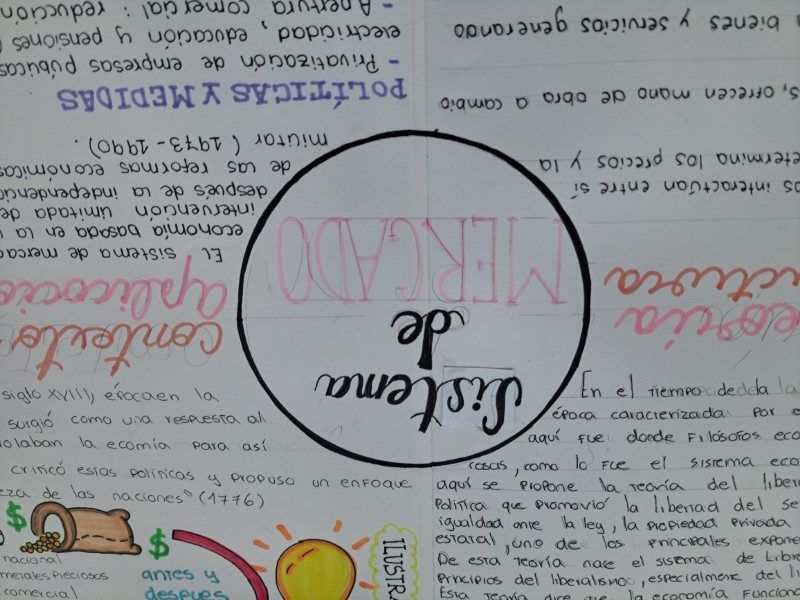 Sistema
de
MERCADO
contexto
aplicacio
El sistema de merca
economía basada en la
intervención limitada de
después de la independencia
de las reformas económicas
militar (1973-1990).
POLÍTICAS Y MEDIDAS
- Privatización de empresas públicas
electricidad, educación y pensiones (
- Apertura comercial: reducción
eoría
uctura
os interactúan entre sí
etermina los precios y la
s, ofrecen mano de obra a cambio
bienes y servicios generando
siglo XVIII, época en la
surgió como una respuesta al
rolaban la ecomía para así
criticó estas políticas y propuso un enfoque
eza de las naciones" (1776)
$
$
nacional
metales preciosos
comercial
antes y
después
ILUSTRA
En el tiempo de de la la
época caracterizada por e
aquí fue donde Filósofos eco
cosas, como lo fce el sistema eco
aquí se propone la teoría del liber
Política que promovió la libertad del se
igualdad ante la ley, la propiedad privada
estatal, uno de los principales expone
De esta teoría nae el sistema de Libre
principios del liberalismo, especialmente del li
Esta teoría dice que la economía funciona